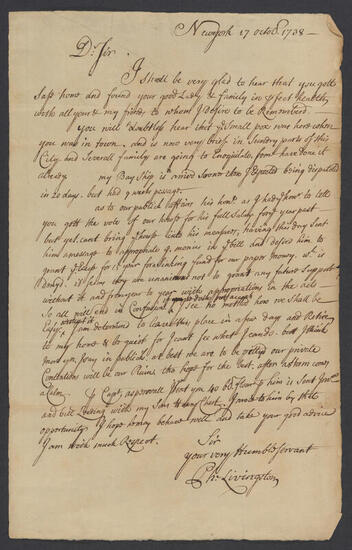 Newyork 17 octobr. 1738 —
Dr. Sir
I Shall be very glad to hear that you gott
Safe home and found your good Lady & family in pfect health
with all your & my friends to whom I desire to be Remembred.
you will doubtless hear that ye Small pox were here when
you was in town, and is now very brief in Sundry parts of this
City and Severall familys are going to Enoculate, some have done it
already my Bay Ship is arived Sooner then I Expected being dispatcd
in 20 day. but had 9 weeks passage.
as to our publick affairs his honr. as I had ye honr. to tell
you gott the vote of our house for his full Salary for ye year past
but yet cant bring ye house into his measures, having this day Sent
them a message to appropriate ye monies in ye bill and desired him to
grant ye 
denyd. it Seems they are unanimous not to grant any future Support
without it and from year to year with appropriations in the acts
So all will end in Confusion I See no method how we shall be
I am determind to leave this place in a few days and Retire
to my home & be quiet for I cant See what I can do. but I think
must give way in publick at best we are to be pittyd our private
Contentions will be our Ruine tho hope for the best, after a Storm coms
a calm. ye Capt. aspinwall Went you 40 bb flour to him is Sent
and bill Lading with my Sons I wrote to him by this
opportunity I hope may behave well and take your good advice
I am with much Respect.
Sir
your very Humble Servant
Ph: Livingston